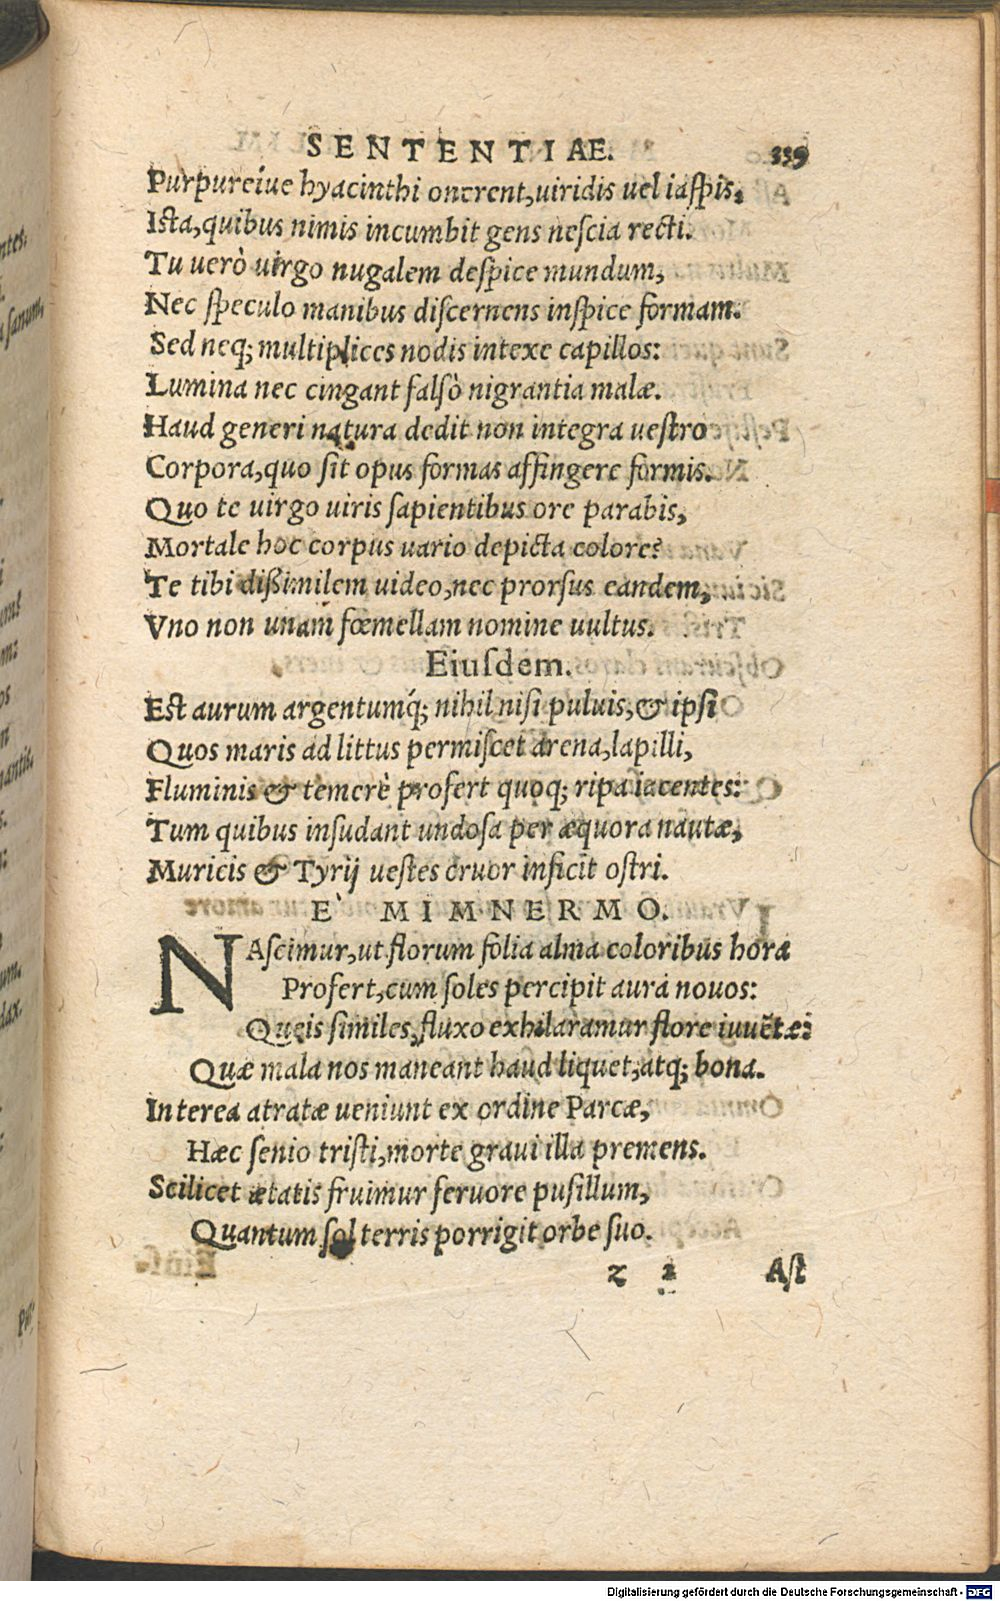 SENTENTIAE. 339
Purpureíue hyacinthi onerent,uiridis uel iaſpis,
Ista,quibus nimis incumbit gens neſcia recti.
Tu uerò uirgo nugalem deſpice mundum,
Nec ſpeculo manibus diſcernens inſpice formam.
Sed neq; multiplices nodis intexe capillos:
Lumina nec cingant falſò nigrantia malæ.
Haud generi natura dedit non integra uestro
Corpora,quo ſit opus formas affingere formis.
Quo te uirgo uiris ſapientibus ore parabis,
Mortale hoc corpus uario depicta colore?
Te tibi dißimilem uideo,nec prorſus eandem,
Vno non unam fœmellam nomine uultus.
Eiuſdem.
Est aurum argentumq́; nihil niſi puluis,& ipſi
Quos maris ad littus permiſcet arena,lapilli,
Fluminis & temerè profert quoq; ripa iacentes:
Tum quibus inſudant undoſa per æquora nautæ,
Muricis & Tyrij uestes cruor inficit oſtri.
E` MIMNERMO.
NAſcimur,ut florum folia alma coloribus hora
Profert,cum ſoles percipit aura nouos:
Queis ſimiles,fluxo exhilaramur flore iuuētæ:
Quæ mala nos maneant haud liquet,atq; bona.
Interea atratæ ueniunt ex ordine Parcæ,
Hæc ſenio triſti,morte graui illa premens.
Scilicet ætatis fruimur feruore puſillum,
Quantum ſol terris porrigit orbe ſuo.
z 2 Aſt
ntes.
ſanum,
nantia.
dax.
Digitalisierung gefördert durch die Deutsche Forschungsgemeinschaft - DFG